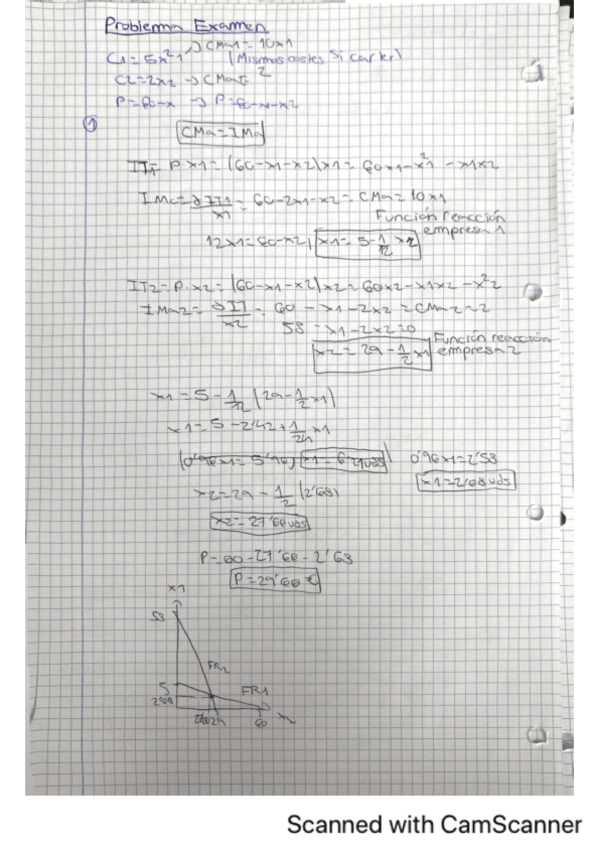 Problema Examen
C1 = 5x²1 → CMa1 = 10x1
(Mismos costes si cartel)
C2 = 2x2 → CMa2 = 2
P = 60-x → P = 60-x1-x2
①
CMa = IMa
IT1 = P·x1 = (60-x1-x2)x1 = 60x1-x1² - x1x2
IMa = ∂IT1/x1 = 60-2x1-x2 = CMa = 10x1
Función reacción
empresa 1
12x1 = 60-x2, x1 = 5-1/12 x2
IT2 = P·x2 = (60-x1-x2)x2 = 60x2-x1x2-x²2
IMa2 = ∂IT/x2 = 60 - x1-2x2 = CMa2 = 2
58 - x1-2x2=0
Función reacción
x2 = 29 - 1/2 x1 empresa 2
x1 = 5 - 1/12 (29-1/2 x1)
x1 = 5-2'42+1/24 x1
0'96x1 = 2'58
x1 = 2'68 uds
x2 = 29 - 1/2 (2'68)
x2 = 27'66 uds
P = 60-27'66-2'68
P = 29'66 €
x1
58
FR2
5
FR1
2'68
29
60
x2
Scanned with CamScanner